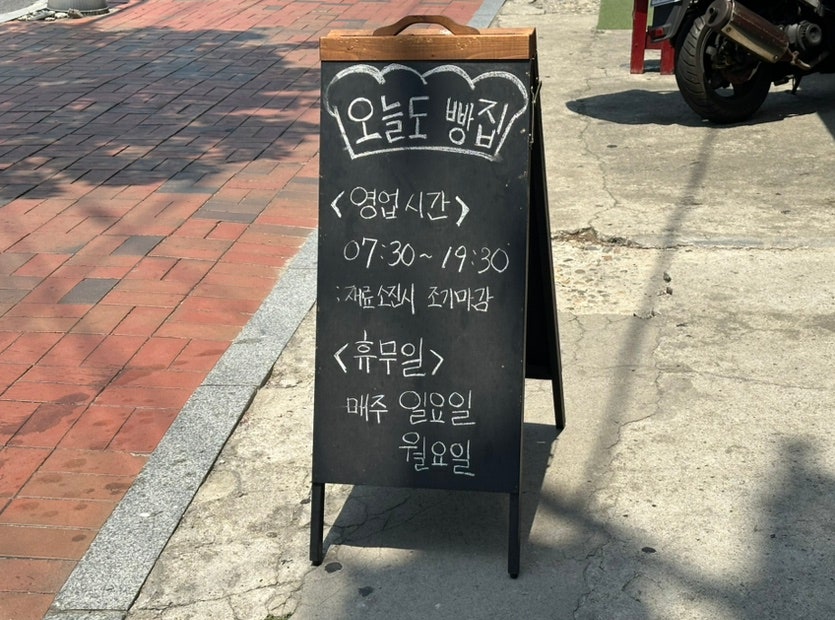 오늘도 빵집
<영업시간>
07:30~19:30
;재료소진시 조기마감
<휴무일>
매주 일요일
월요일